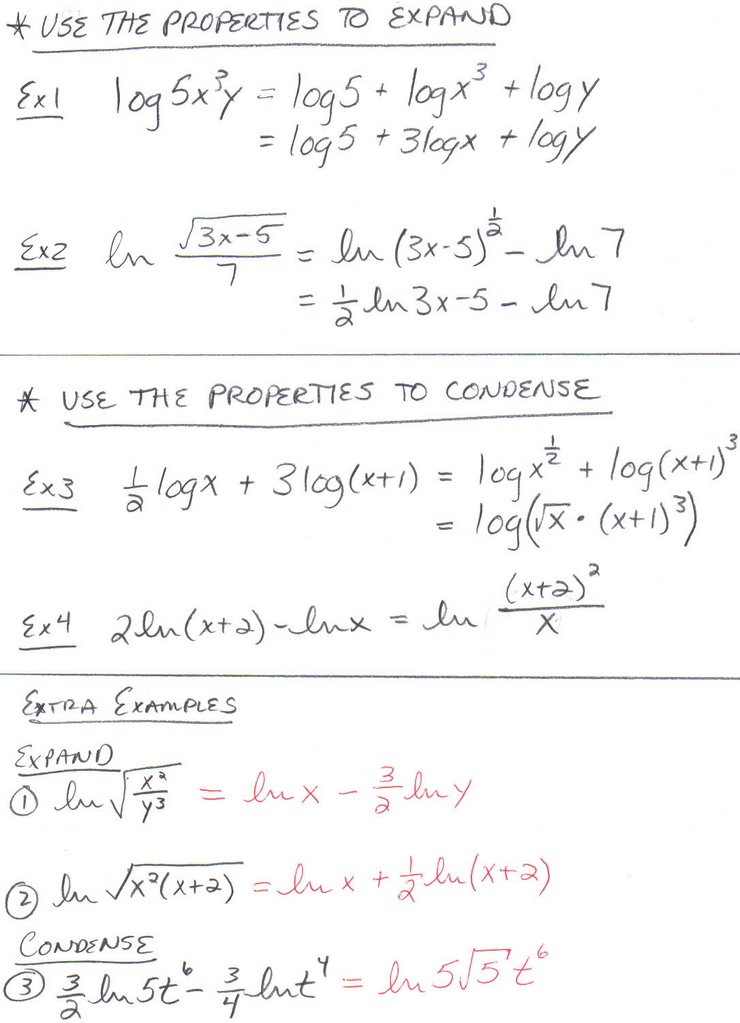 * USE THE PROPERTIES TO EXPAND
Ex1 log5x³y = log5 + logx³ + logy
= log5 + 3logx + logy
Ex2 ln √(3x-5)/7 = ln(3x-5)^(1/2) - ln7
= 1/2 ln3x-5 - ln7
* USE THE PROPERTIES TO CONDENSE
Ex3 1/2 logx + 3log(x+1) = logx^(1/2) + log(x+1)³
= log(√x · (x+1)³)
Ex4 2ln(x+2) - lnx = ln (x+2)²/x
EXTRA EXAMPLES
EXPAND
① ln√(x²/y³) = lnx - 3/2 lny
② ln√(x²(x+2)) = lnx + 1/2 ln(x+2)
CONDENSE
③ 3/2 ln5t⁶ - 3/4 lnt⁴ = ln5√5 t⁶